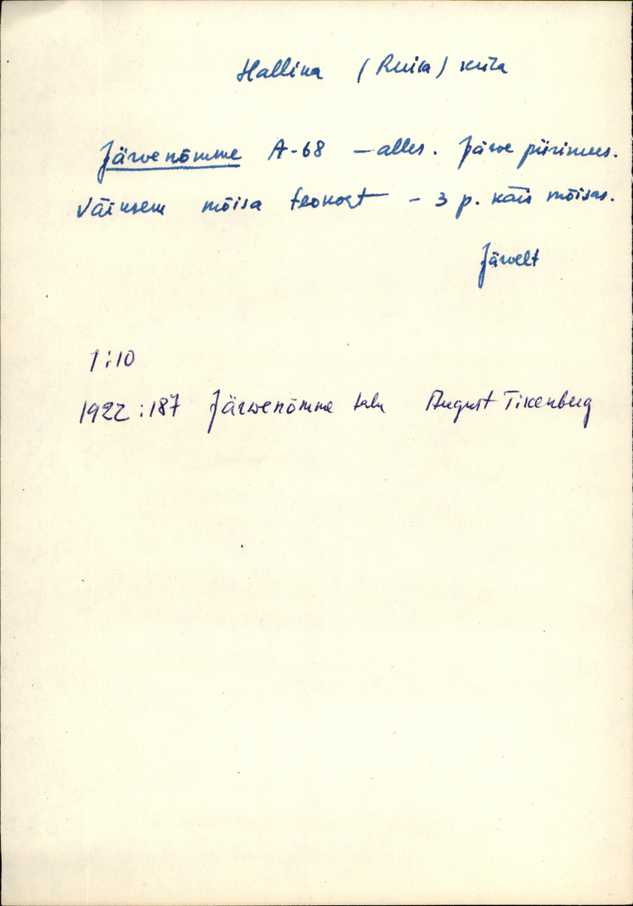 Hallina (Ruila) küla
Järvenõmme A-68 – alles. Järve piirimees.
Väiksem mõisa teokoht – 3 p. käis mõisas.
Järvelt
1:10
1922:187 Järvenõmme talu August Tikenberg